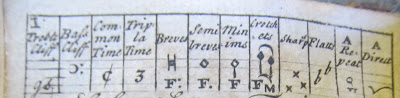 1.
Treble Cliff
Bass Cliff
Com mon Time
Trip la Time
Breves
Semi breves
Min ims
Crotch ets
Sharp
Flatts
A Re peat
A Direct
F:
F.
F.
F
M